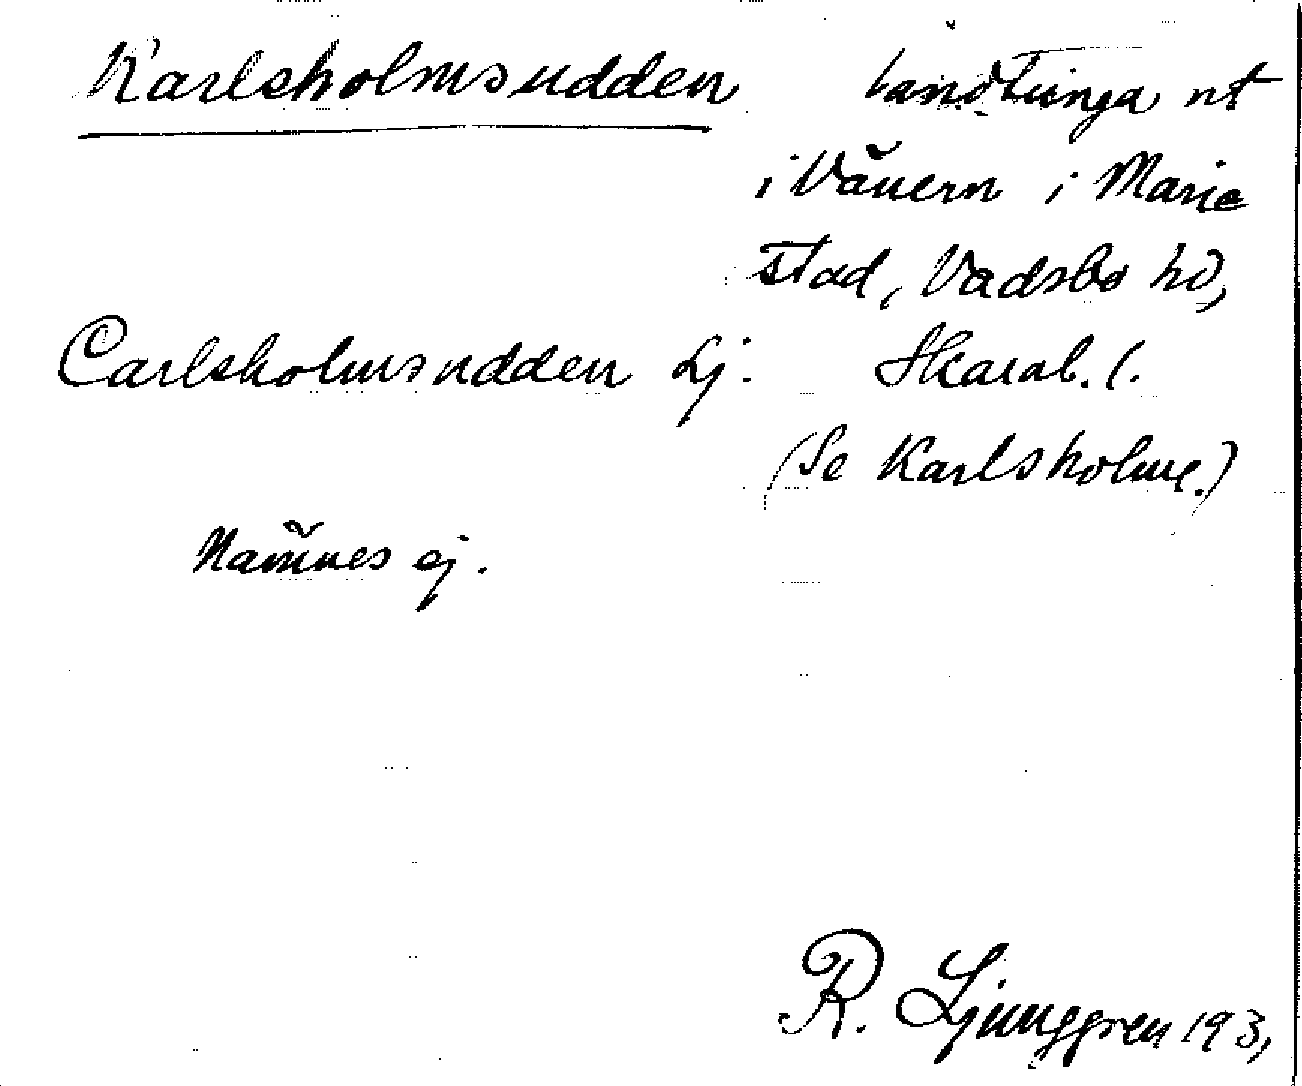 Karlsholmsudden
Landtunga ut
i Vänern i Marie
stad, Vadsbo hd,
Carlsholmsudden Lj. Skarab. l.
(Se Karlsholme.)
Namnes ej.
R. Ljunggren 193,